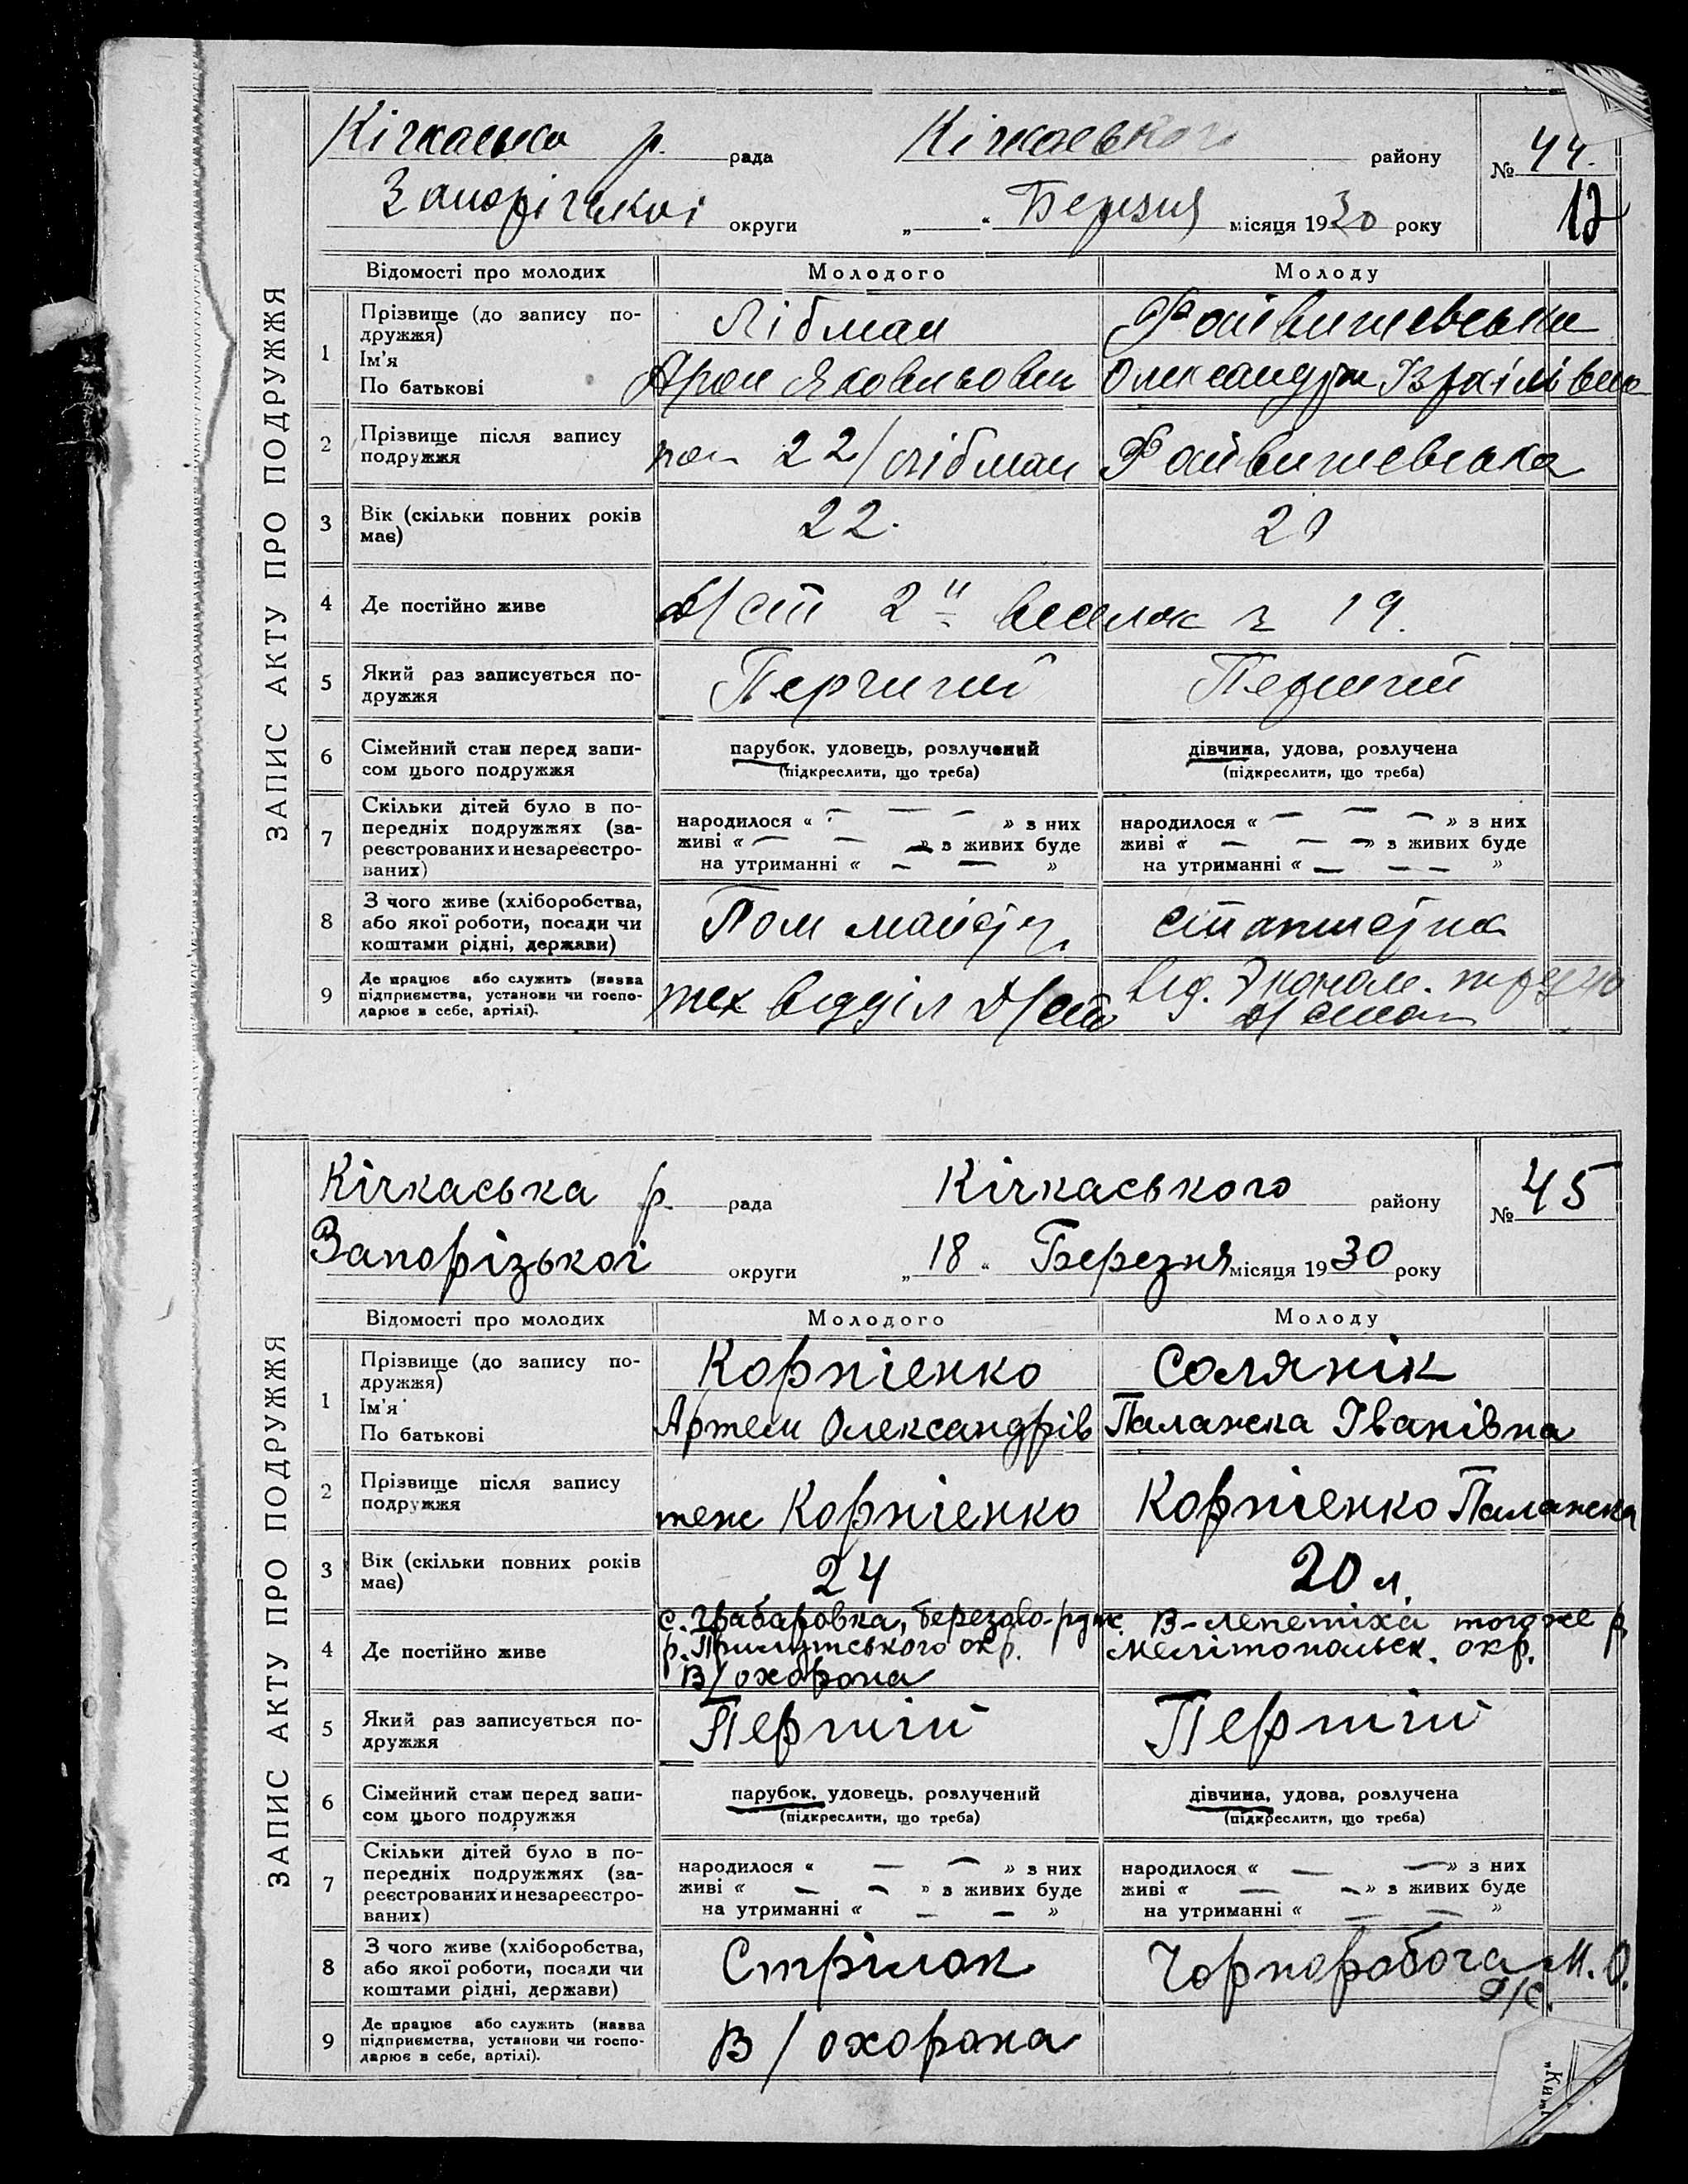 ЗАПИС АКТУ ПРО ПОДРУЖЖЯ
Кічкаська р. рада Кічкаського району № 44.
Запорізької округи „ “ Березня місяця 1930 року 17
Відомості про молодих Молодого Молоду
1 Прізвище (до запису по-
дружжя) Лібман Файвишевська
Ім'я
По батькові Арон Яковльович Олександра Ізраілівна
2 Прізвище після запису
подружжя 22/Лібман Файвишевська
3 Вік (скільки повних років
має) 22.
4 Де постійно живе Д/ст 2й 19.
5 Який раз записується по-
дружжя Перший Перший
6 Сімейний стан перед запи-
сом цього подружжя парубок, удовець, розлучений дівчина, удова, розлучена
(підкреслити, що треба) (підкреслити, що треба)
7 Скільки дітей було в по-
передніх подружжях (за-
реєстрованих и незареєстро-
ваних)
народилося « — — — » з них народилося « — — — » з них
живі « — — » з живих буде живі « — — — » з живих буде
на утриманні « — — » на утриманні « — — — »
8 З чого живе (хліборобства,
або якої роботи, посади чи
коштами рідні, держави) Пом майстр.
9 Де працює або служить (назва
підприємства, установи чи госпо-
дарює в себе, артілі). тех відділ Д/ст від. Економ.
ЗАПИС АКТУ ПРО ПОДРУЖЖЯ
Кічкаська р. рада Кічкаського району № 45
Запорізької округи „18“ Березня місяця 1930 року
Відомості про молодих Молодого Молоду
1 Прізвище (до запису по-
дружжя) Корнієнко Солянік
Ім'я
По батькові Артем Олександрів Палажка Іванівна
2 Прізвище після запису
подружжя теж Корнієнко Корнієнко Палажка
3 Вік (скільки повних років
має) 24 20 л.
4 Де постійно живе
с. Грабаровка, Березово-рудк. В-Лепетіха тогоже р
р. Прилутського окр. Мелітопольск. окр.
В/охорона
5 Який раз записується по-
дружжя Першій Першій
6 Сімейний стан перед запи-
сом цього подружжя парубок, удовець, розлучений дівчина, удова, розлучена
(підкреслити, що треба) (підкреслити, що треба)
7 Скільки дітей було в по-
передніх подружжях (за-
реєстрованих и незареєстро-
ваних)
народилося « — — » з них народилося « — — » з них
живі « — — » з живих буде живі « — — » з живих буде
на утриманні « — — » на утриманні « — — »
8 З чого живе (хліборобства,
або якої роботи, посади чи
коштами рідні, держави) Стрілок Чорноробоча М.О.
Д/С.
9 Де працює або служить (назва
підприємства, установи чи госпо-
дарює в себе, артілі). В/охорона